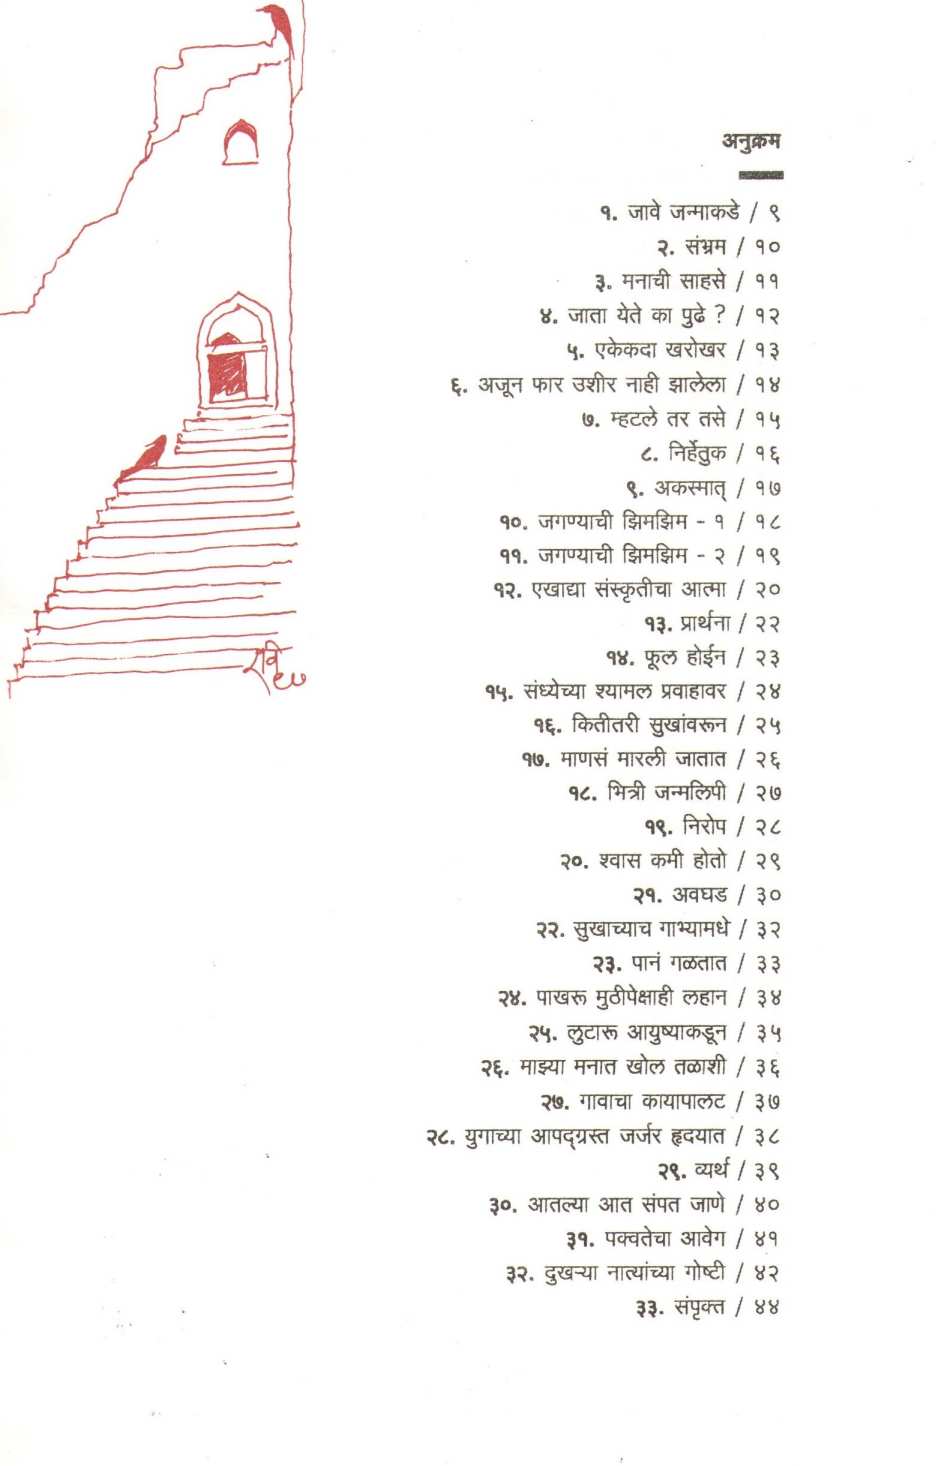 अनुक्रम
१. जावे जन्माकडे / ९
२. संभ्रम / १०
३. मनाची साहसे / ११
४. जाता येते का पुढे ? / १२
५. एकेकदा खरोखर / १३
६. अजून फार उशीर नाही झालेला / १४
७. म्हटले तर तसे / १५
८. निर्हेतुक / १६
९. अकस्मात् / १७
१०. जगण्याची झिमझिम - १ / १८
११. जगण्याची झिमझिम - २ / १९
१२. एखाद्या संस्कृतीचा आत्मा / २०
१३. प्रार्थना / २२
१४. फूल होईन / २३
१५. संध्येच्या श्यामल प्रवाहावर / २४
१६. कितीतरी सुखांवरून / २५
१७. माणसं मारली जातात / २६
१८. भित्री जन्मलिपी / २७
१९. निरोप / २८
२०. श्वास कमी होतो / २९
२१. अवघड / ३०
२२. सुखाच्याच गाभ्यामधे / ३२
२३. पानं गळतात / ३३
२४. पाखरू मुठीपेक्षाही लहान / ३४
२५. लुटारू आयुष्याकडून / ३५
२६. माझ्या मनात खोल तळाशी / ३६
२७. गावाचा कायापालट / ३७
२८. युगाच्या आपद्ग्रस्त जर्जर हृदयात / ३८
२९. व्यर्थ / ३९
३०. आतल्या आत संपत जाणे / ४०
३१. पक्वतेचा आवेग / ४१
३२. दुखऱ्या नात्यांच्या गोष्टी / ४२
३३. संपृक्त / ४४